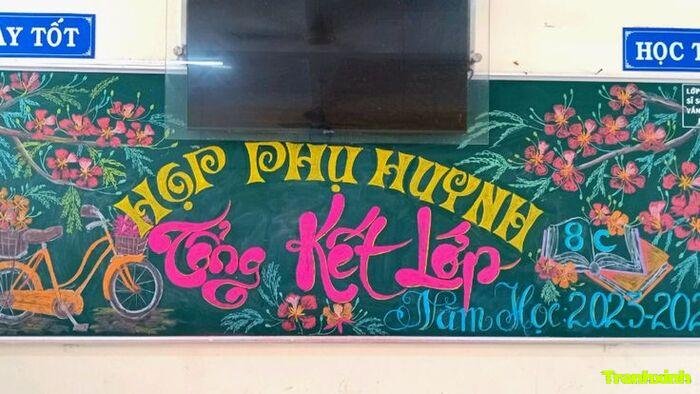 ẠY TỐT
HỌC T
LỚP
SĨ S
VẮN
HỌP PHỤ HUYNH
Tổng Kết Lớp
8C
Năm Học: 2023-202
Tranhxinh